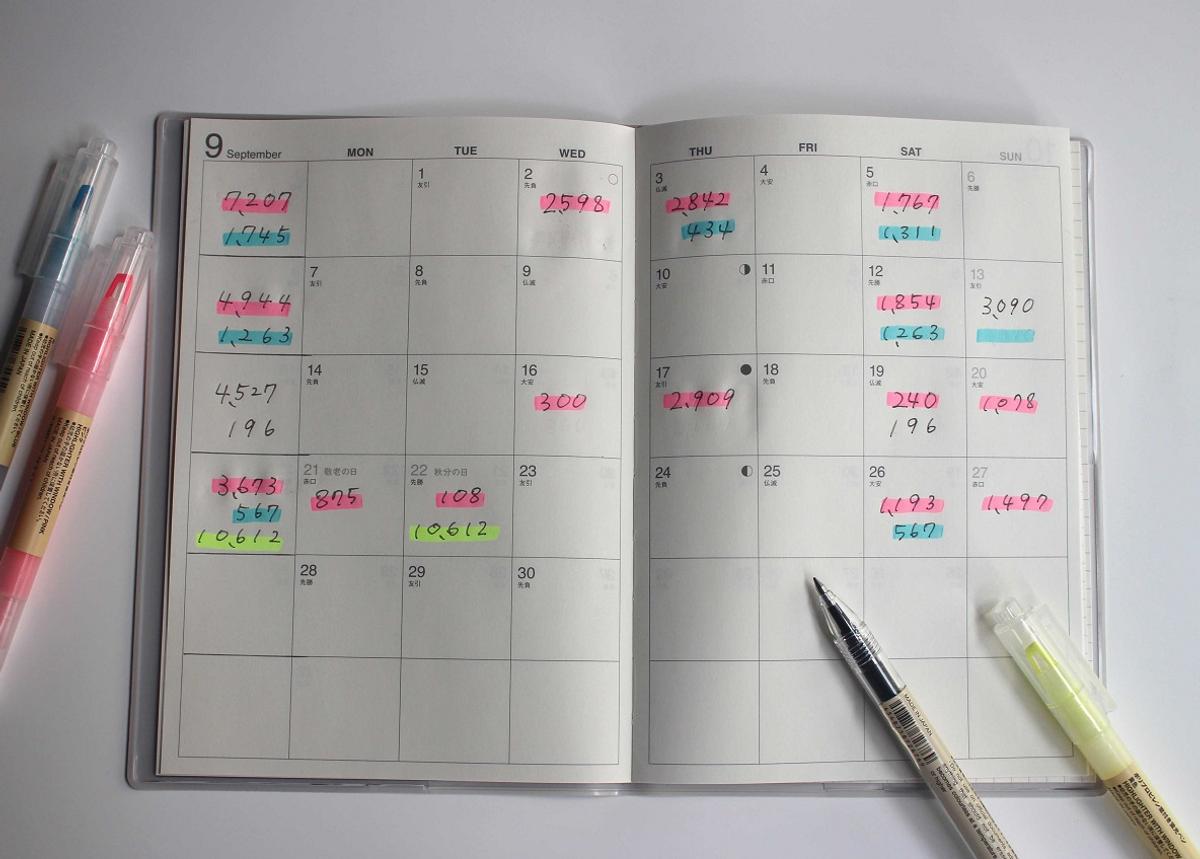 9 September
MON
TUE
WED
THU
FRI
SAT
SUN
7,207
1,745
1
友引
2
先負
2,598
3
仏滅
2,842
434
4
大安
5
赤口
1,767
1,311
6
先勝
4,944
1,263
7
友引
8
先負
9
仏滅
10
大安
11
赤口
12
先勝
1,854
1,263
13
友引
3,090
4,527
196
14
先負
15
仏滅
16
大安
300
17
友引
2,909
18
先負
19
仏滅
240
196
20
大安
1,078
3,673
567
10,612
21 敬老の日
赤口
875
22 秋分の日
先勝
108
10,612
23
友引
24
先負
25
仏滅
26
大安
1,193
567
27
赤口
1,497
28
先勝
29
友引
30
先負
MADE IN JAPAN
HIGHLIGHTER WITH WINDOW/PINK
MADE IN JAPAN
HIGHLIGHTER WITH WINDOW